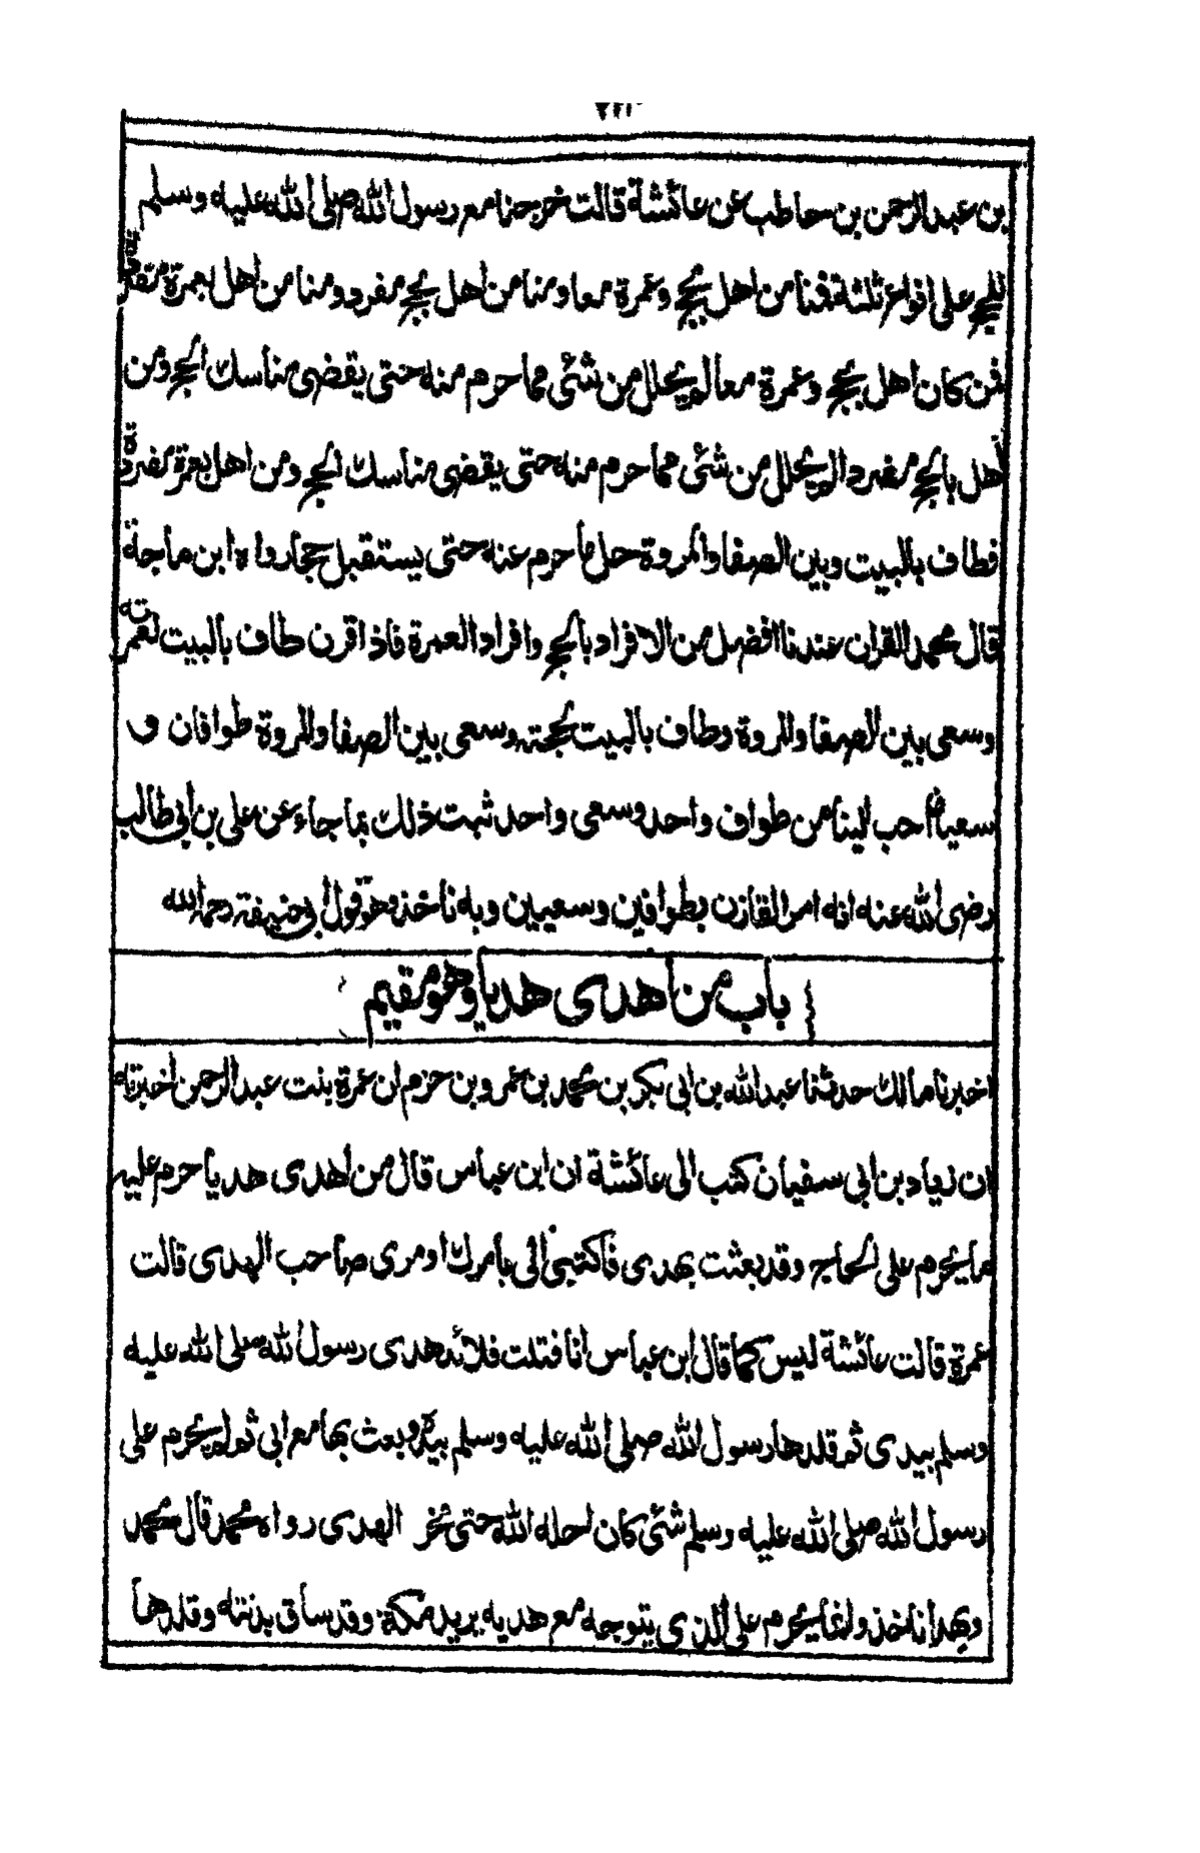 بن عبد الرحمن بن حاطب عن عائشة قالت خرجنا مع رسول الله صلى الله عليه وسلم
للحج على انواع ثلثة فمنا من اهل بحج وعمرة معا ومنا من اهل بحج مفرد ومنا من اهل بعمرة متفرقة
فمن كان اهل بحج وعمرة معا لم يحلل من شئى مما حرم منه حتى يقضى مناسك الحج ومن
اهل بالحج مفرد الم يحلل من شئى مما حرم منه حتى يقضى مناسك الحج ومن اهل بعمرة مفردة
فطاف بالبيت وبين الصفا والمروة حل ما حرم عنه حتى يستقبل حجا رواه ابن ماجة
قال محمد القران عندنا افضل من الافراد بالحج وافراد العمرة فاذا قرن طاف بالبيت لعمرته
وسعى بين الصفا والمروة وطاف بالبيت لحجته وسعى بين الصفا والمروة طوافان و
سعيان احب الينا من طواف واحد وسعى واحد ثبت ذلك بما جاء عن على بن ابى طالب
رضى الله عنه انه امر القارن بطوافين وسعيين وبه ناخذ وهو قول ابى حنيفة رحمه الله
باب من اهدى هديا وهو مقيم
اخبرنا مالك حدثنا عبد الله بن ابى بكر بن محمد بن عمرو بن حزم ان عمرة بنت عبد الرحمن اخبرته
ان زياد بن ابى سفيان كتب الى عائشة ان ابن عباس قال من اهدى هديا حرم عليه
ما يحرم على الحاج وقد بعثت بهدى فاكتبى الى بامرك او مرى صاحب الهدى قالت
عمرة قالت عائشة ليس كما قال ابن عباس انا فتلت قلائد هدى رسول الله صلى الله عليه
وسلم بيدى ثم قلدها رسول الله صلى الله عليه وسلم بيده وبعث بها مع ابى ثم لم يحرم على
رسول الله صلى الله عليه وسلم شئى كان احله الله حتى نحر الهدى رواه محمد قال محمد
وبهذا ناخذ وانما يحرم على الذى يتوجه مع هديه يريد مكة وقد ساق بدنته وقلدها